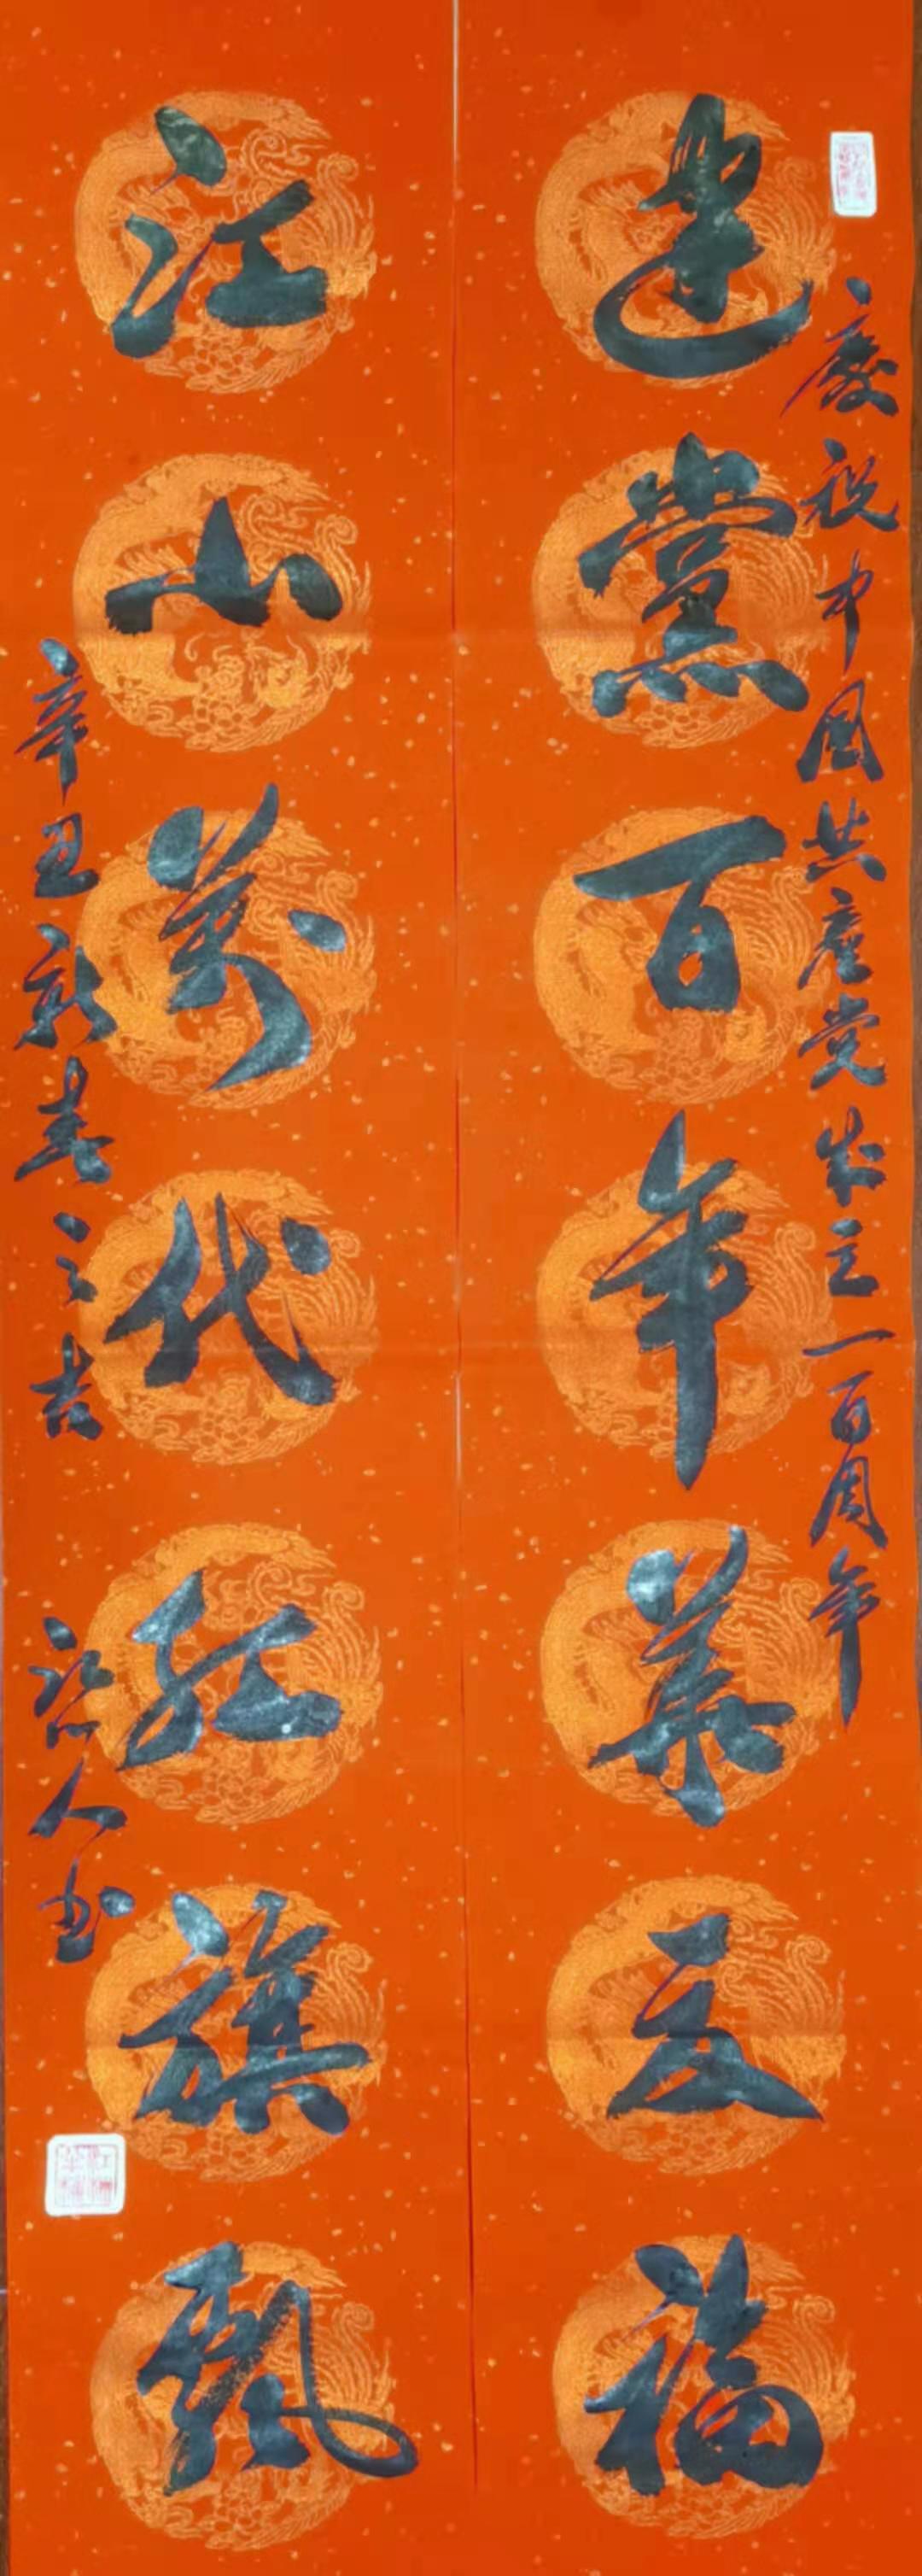 慶祝中国共產党成立一百周年
建黨百年業福
江山萬代紅旗飄
辛丑新春之吉 人书